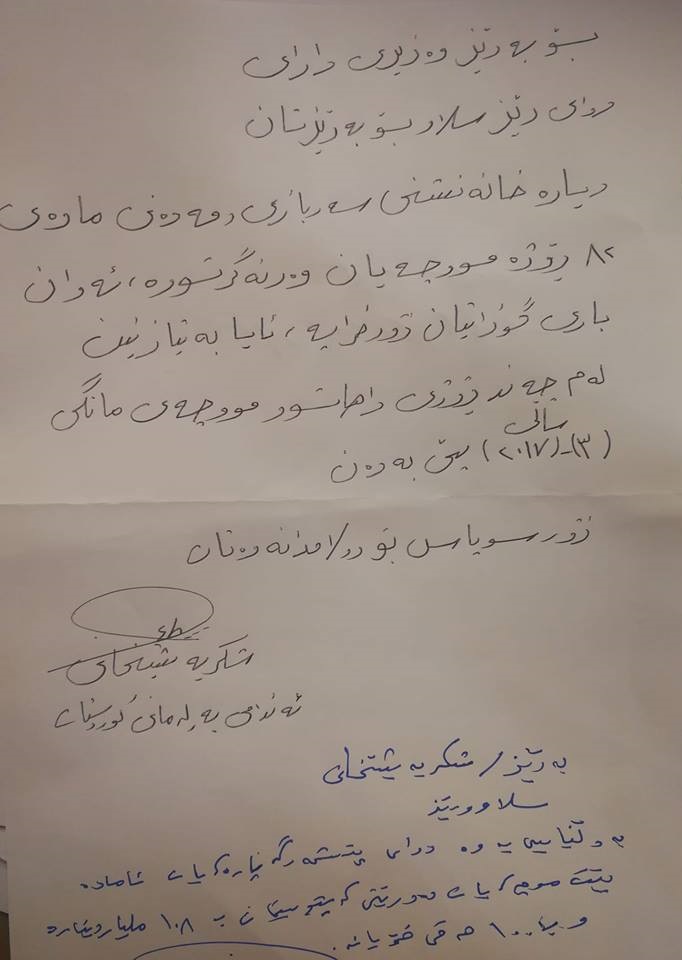 بۆ بەڕێز وەزیری دارای
دوای ڕێز سلاو بۆ بەڕێزتان
دیارە خانەنشنی سەربازی ومەدەنی ماوەی
٨٢ ڕۆژە موچەیان وەرنەگرتووە، ئەوان
باری گوزرانیان زۆر خراپە، ئایا بەنیازنین
لەم چەند ڕۆژی داهاتوو مووچەی مانگی
(٣)-(٢٠١٧) سالی پێ بدەن
زۆر سوپاس بۆ وەلامدانەوەتان
شکریە شێخانی
ئەندامی پەرلەمانی کوردستان
بەڕێز/ شکریە شێخانی
سلاو وڕێز
بە دڵنیاییەوە دوای پێشمەرگە پارەکەیان ئامادە
مووچەکەیان ١٠٨ ملیار دینارە
و ١٠٠٪ حەقی خۆیانە.